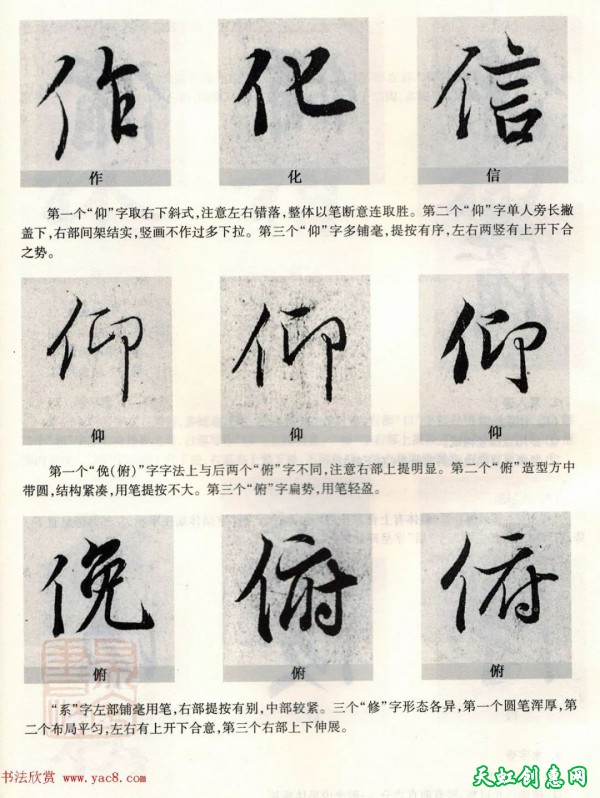 作 化 信
作 化 信
第一个“仰”字取右下斜式,注意左右错落,整体以笔断意连取胜。第二个“仰”字单人旁长撇
盖下,右部间架结实,竖画不作过多下拉。第三个“仰”字多铺毫,提按有序,左右两竖有上开下合
之势。
仰 仰 仰
仰 仰 仰
第一个“俛(俯)”字字法上与后两个“俯”字不同,注意右部上提明显。第二个“俯”造型方中
带圆,结构紧凑,用笔提按不大。第三个“俯”字扁势,用笔轻盈。
俛 俯 俯
俯 俯 俯
“系”字左部铺毫用笔,右部提按有别,中部较紧。三个“修”字形态各异,第一个圆笔浑厚,第
二个布局平匀,左右有上开下合意,第三个右部上下伸展。
书法欣赏 www.yac8.com
天虹创惠网